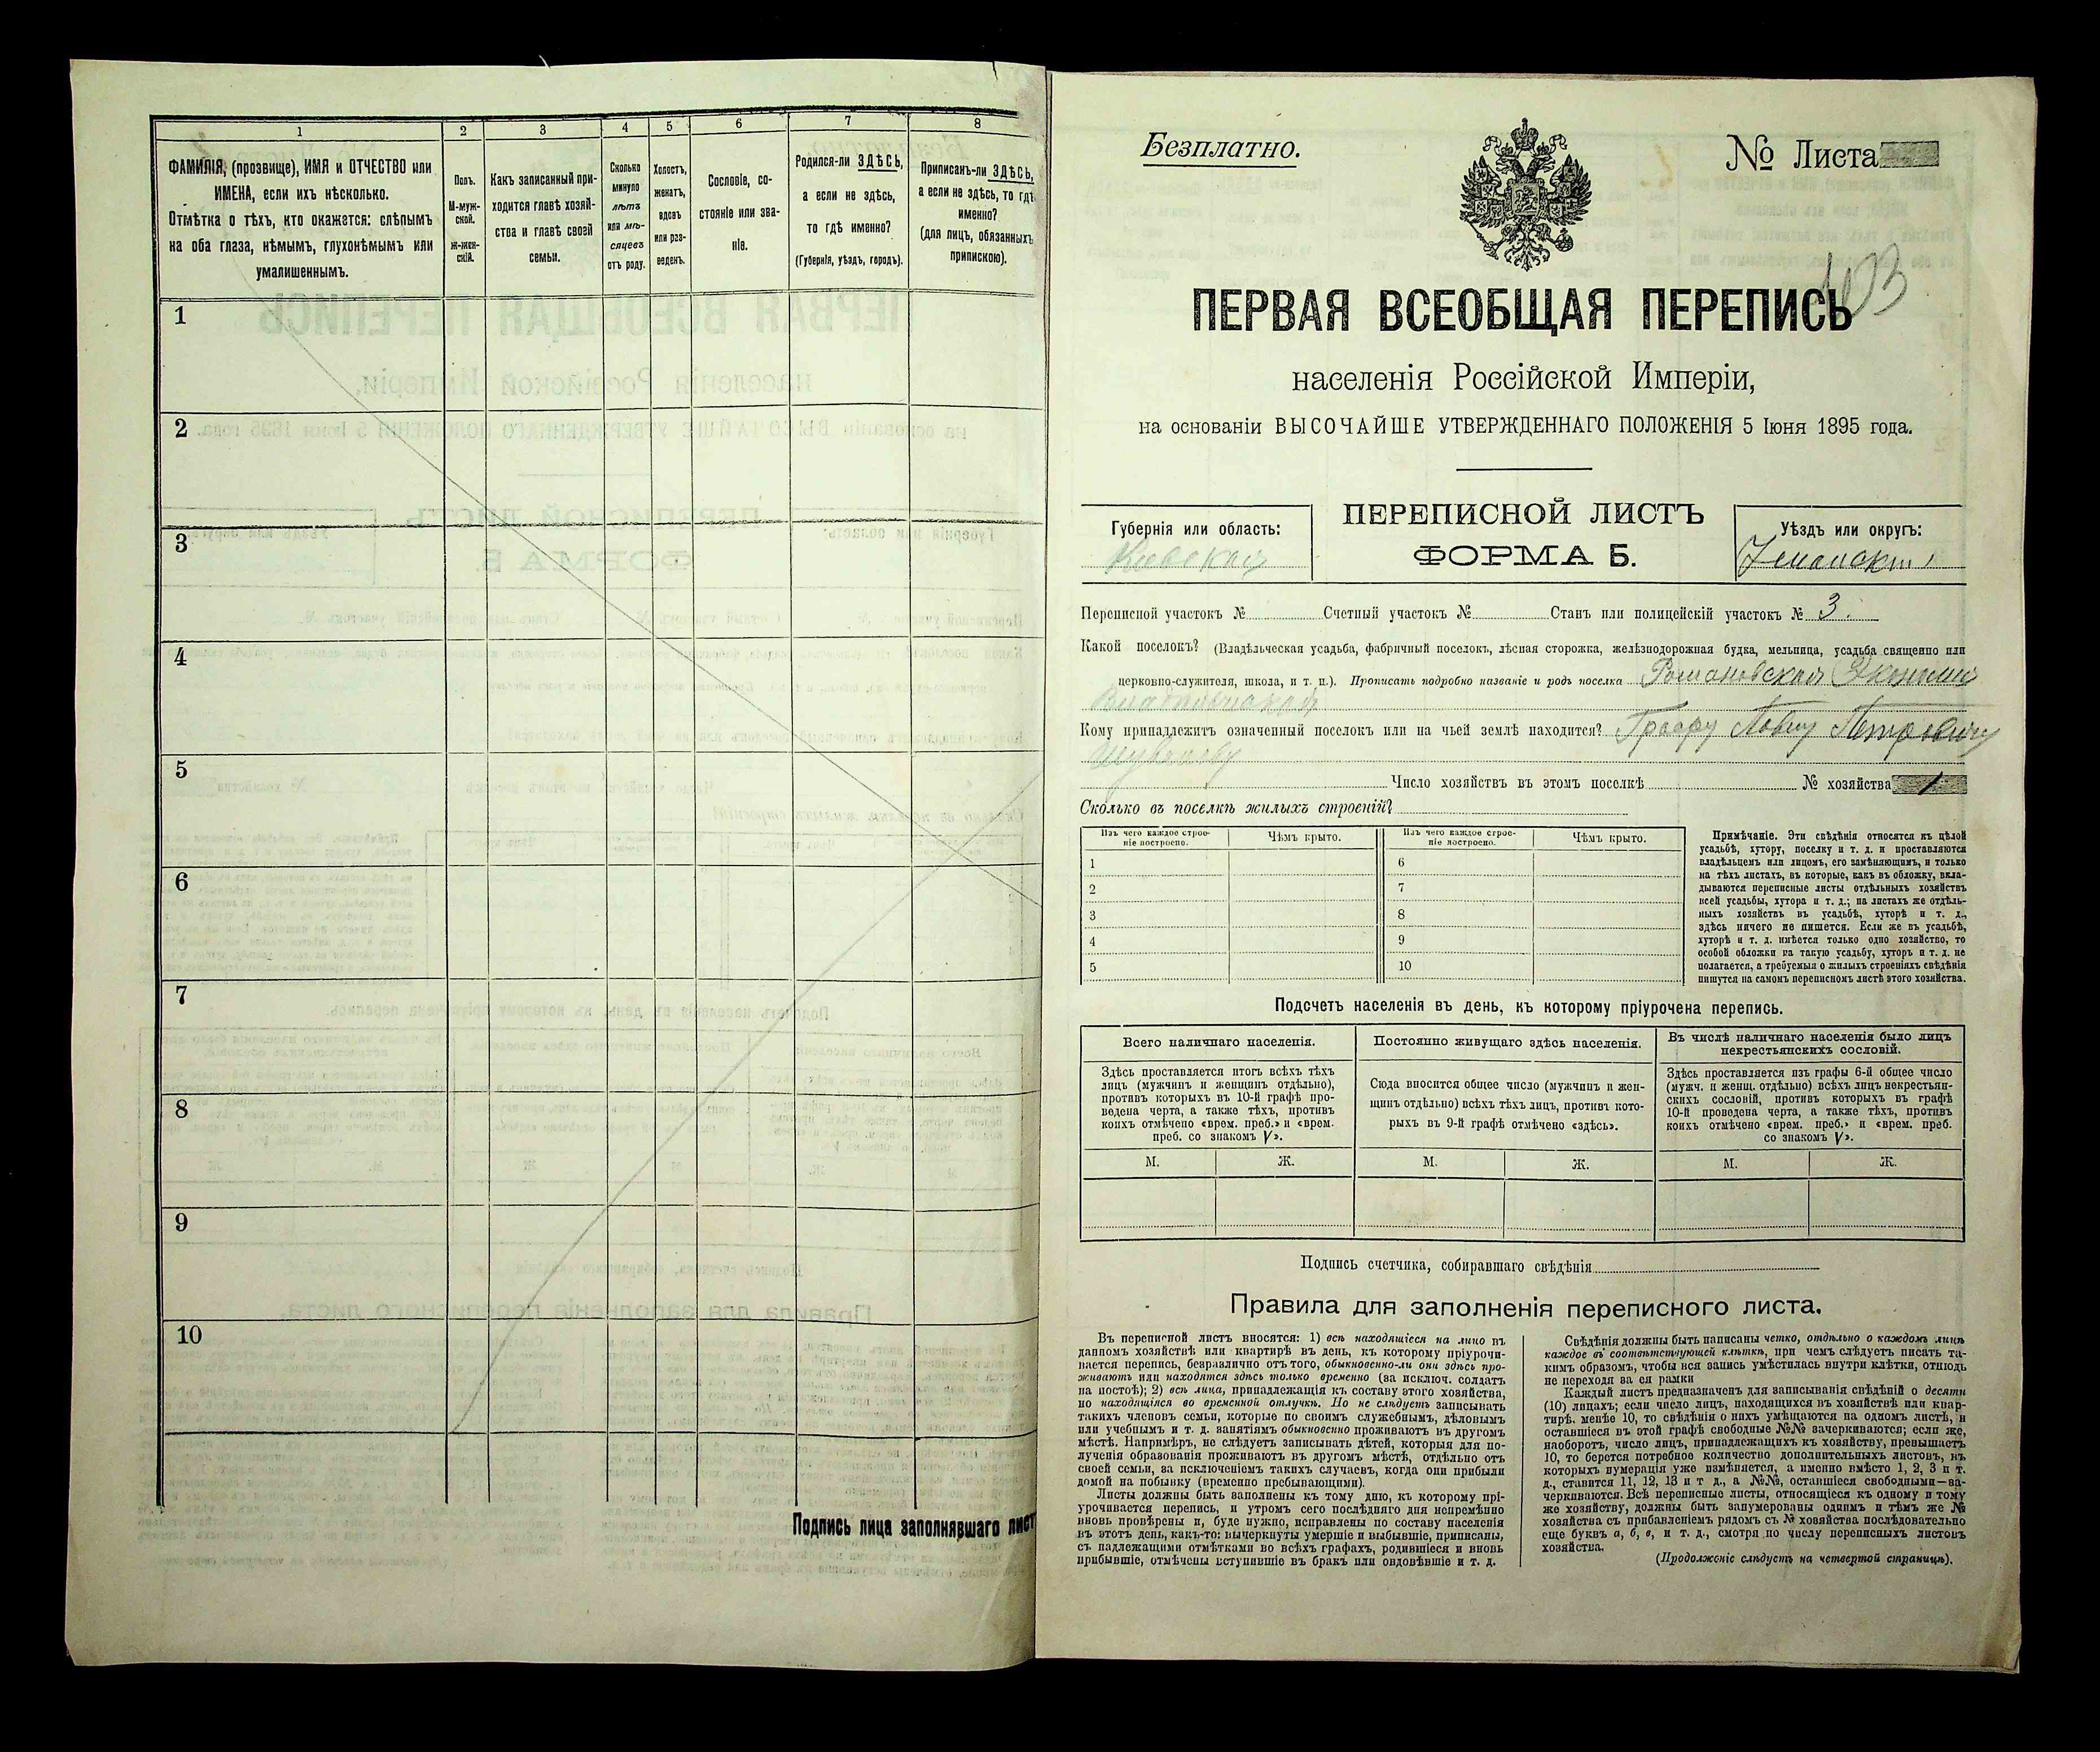 1
2
3
4
5
6
7
8
ФАМИЛІЯ, (прозвище), ИМЯ и ОТЧЕСТВО или
ИМЕНА, если ихъ нѣсколько.
Отмѣтка о тѣхъ, кто окажется: слѣпымъ
на оба глаза, нѣмымъ, глухонѣмымъ или
умалишеннымъ.
Полъ.
М-муж-
ской.
ж-жен-
скій.
Какъ записанный при-
ходится главѣ хозяй-
ства и главѣ своей
семьи.
Сколько
минуло
лѣтъ
или мѣ-
сяцевъ
отъ роду.
Холостъ,
женатъ,
вдовъ
или раз-
веденъ.
Сословіе, со-
стояніе или зва-
ніе.
Родился-ли ЗДѢСЬ,
а если не здѣсь,
то гдѣ именно?
(Губернія, уѣздъ, городъ).
Приписанъ-ли ЗДѢСЬ,
а если не здѣсь, то гдѣ
именно?
(для лицъ, обязанныхъ
припискою).
1
2
3
4
5
6
7
8
9
10
Подпись лица заполнявшаго лист
Безплатно.
№ Листа
403
ПЕРВАЯ ВСЕОБЩАЯ ПЕРЕПИСЬ
населенія Россійской Имперіи,
на основаніи ВЫСОЧАЙШЕ УТВЕРЖДЕННАГО ПОЛОЖЕНІЯ 5 Іюня 1895 года.
Губернія или область:
Кіевская
ПЕРЕПИСНОЙ ЛИСТЪ
ФОРМА Б.
Уѣздъ или округъ:
Уманскій
Переписной участокъ № Счетный участокъ № Станъ или полицейскій участокъ № 3.
Какой поселокъ? (Владѣльческая усадьба, фабричный поселокъ, лѣсная сторожка, желѣзнодорожная будка, мельница, усадьба священно или
церковно-служителя, школа, и т. п.). Прописать подробно названіе и родъ поселка Романовская Экономія
Кому принадлежитъ означенный поселокъ или на чьей землѣ находится? Графу Павлу Петровичу
Шувалову
Число хозяйствъ въ этомъ поселкѣ № хозяйства 1
Сколько въ поселкѣ жилыхъ строеній?
Изъ чего каждое строе-
ніе построено.
Чѣмъ крыто.
Изъ чего каждое строе-
ніе построено.
Чѣмъ крыто.
1
2
3
4
5
6
7
8
9
10
Примѣчаніе. Эти свѣдѣнія относятся къ цѣлой
усадьбѣ, хутору, поселку и т. д. и проставляются
владѣльцемъ или лицомъ, его замѣняющимъ, и только
на тѣхъ листахъ, въ которые, какъ въ обложку, вкла-
дываются переписные листы отдѣльныхъ хозяйствъ
всей усадьбы, хутора и т. д.; на листахъ же отдѣль-
ныхъ хозяйствъ въ усадьбѣ, хуторѣ и т. д.,
здѣсь ничего не пишется. Если же въ усадьбѣ,
хуторѣ и т. д. имѣется только одно хозяйство, то
особой обложки на такую усадьбу, хуторъ и т. д. не
полагается, а требуемыя о жилыхъ строеніяхъ свѣдѣнія
пишутся на самомъ переписномъ листѣ этого хозяйства.
Подсчетъ населенія въ день, къ которому пріурочена перепись.
Всего наличнаго населенія.
Здѣсь проставляется итогъ всѣхъ тѣхъ
лицъ (мужчинъ и женщинъ отдѣльно),
противъ которыхъ въ 10-й графѣ про-
ведена черта, а также тѣхъ, противъ
коихъ отмѣчено «врем. преб.» и «врем.
преб. со знакомъ V».
Постоянно живущаго здѣсь населенія.
Сюда вносится общее число (мужчинъ и жен-
щинъ отдѣльно) всѣхъ тѣхъ лицъ, противъ кото-
рыхъ въ 9-й графѣ отмѣчено «здѣсь».
Въ числѣ наличнаго населенія было лицъ
некрестьянскихъ сословій.
Здѣсь проставляется изъ графы 6-й общее число
(мужч. и женщ. отдѣльно) всѣхъ лицъ некрестьян-
скихъ сословій, противъ которыхъ въ графѣ
10-й проведена черта, а также тѣхъ, противъ
коихъ отмѣчено «врем. преб.» и «врем. преб.
со знакомъ V».
М.
Ж.
М.
Ж.
М.
Ж.
Подпись счетчика, собиравшаго свѣдѣнія
Правила для заполненія переписного листа.
Въ переписной листъ вносятся: 1) всѣ находящіеся на лицо въ
данномъ хозяйствѣ или квартирѣ въ день, къ которому пріурочи-
вается перепись, безразлично отъ того, обыкновенно-ли они здѣсь про-
живаютъ или находятся здѣсь только временно (за исключ. солдатъ
на постоѣ); 2) всѣ лица, принадлежащія къ составу этого хозяйства,
но находящіяся во временной отлучкѣ. Но не слѣдуетъ записывать
такихъ членовъ семьи, которые по своимъ служебнымъ, дѣловымъ
или учебнымъ и т. д. занятіямъ обыкновенно проживаютъ въ другомъ
мѣстѣ. Напримѣръ, не слѣдуетъ записывать дѣтей, которыя для по-
лученія образованія проживаютъ въ другомъ мѣстѣ, отдѣльно отъ
своей семьи, за исключеніемъ такихъ случаевъ, когда они прибыли
домой на побывку (временно пребывающими).
Листы должны быть заполнены къ тому дню, къ которому прі-
урочивается перепись, и утромъ сего послѣдняго дня непремѣнно
вновь провѣрены и, буде нужно, исправлены по составу населенія
въ этотъ день, какъ-то: вычеркнуты умершіе и выбывшіе, приписаны,
съ надлежащими отмѣтками во всѣхъ графахъ, родившіеся и вновь
прибывшіе, отмѣчены вступившіе въ бракъ или овдовѣвшіе и т. д.
Свѣдѣнія должны быть написаны четко, отдѣльно о каждомъ лицѣ
каждое въ соотвѣтствующей клѣткѣ, при чемъ слѣдуетъ писать та-
кимъ образомъ, чтобы вся запись умѣстилась внутри клѣтки, отнюдь
не переходя за ея рамки
Каждый листъ предназначенъ для записыванія свѣдѣній о десяти
(10) лицахъ; если число лицъ, находящихся въ хозяйствѣ или квар-
тирѣ, менѣе 10, то свѣдѣнія о нихъ умѣщаются на одномъ листѣ, и
оставшіеся въ этой графѣ свободные №№ зачеркиваются; если же,
наоборотъ, число лицъ, принадлежащихъ къ хозяйству, превышаетъ
10, то берется потребное количество дополнительныхъ листовъ, въ
которыхъ нумерація уже измѣняется, а именно вмѣсто 1, 2, 3 и т.
д., ставится 11, 12, 13 и т д., а №№, оставшіеся свободными—за-
черкиваются. Всѣ переписные листы, относящіеся къ одному и тому
же хозяйству, должны быть занумерованы однимъ и тѣмъ же №
хозяйства съ прибавленіемъ рядомъ съ № хозяйства послѣдовательно
еще буквъ а, б, в, и т. д., смотря по числу переписныхъ листовъ
хозяйства.
(Продолженіе слѣдуетъ на четвертой страницѣ).